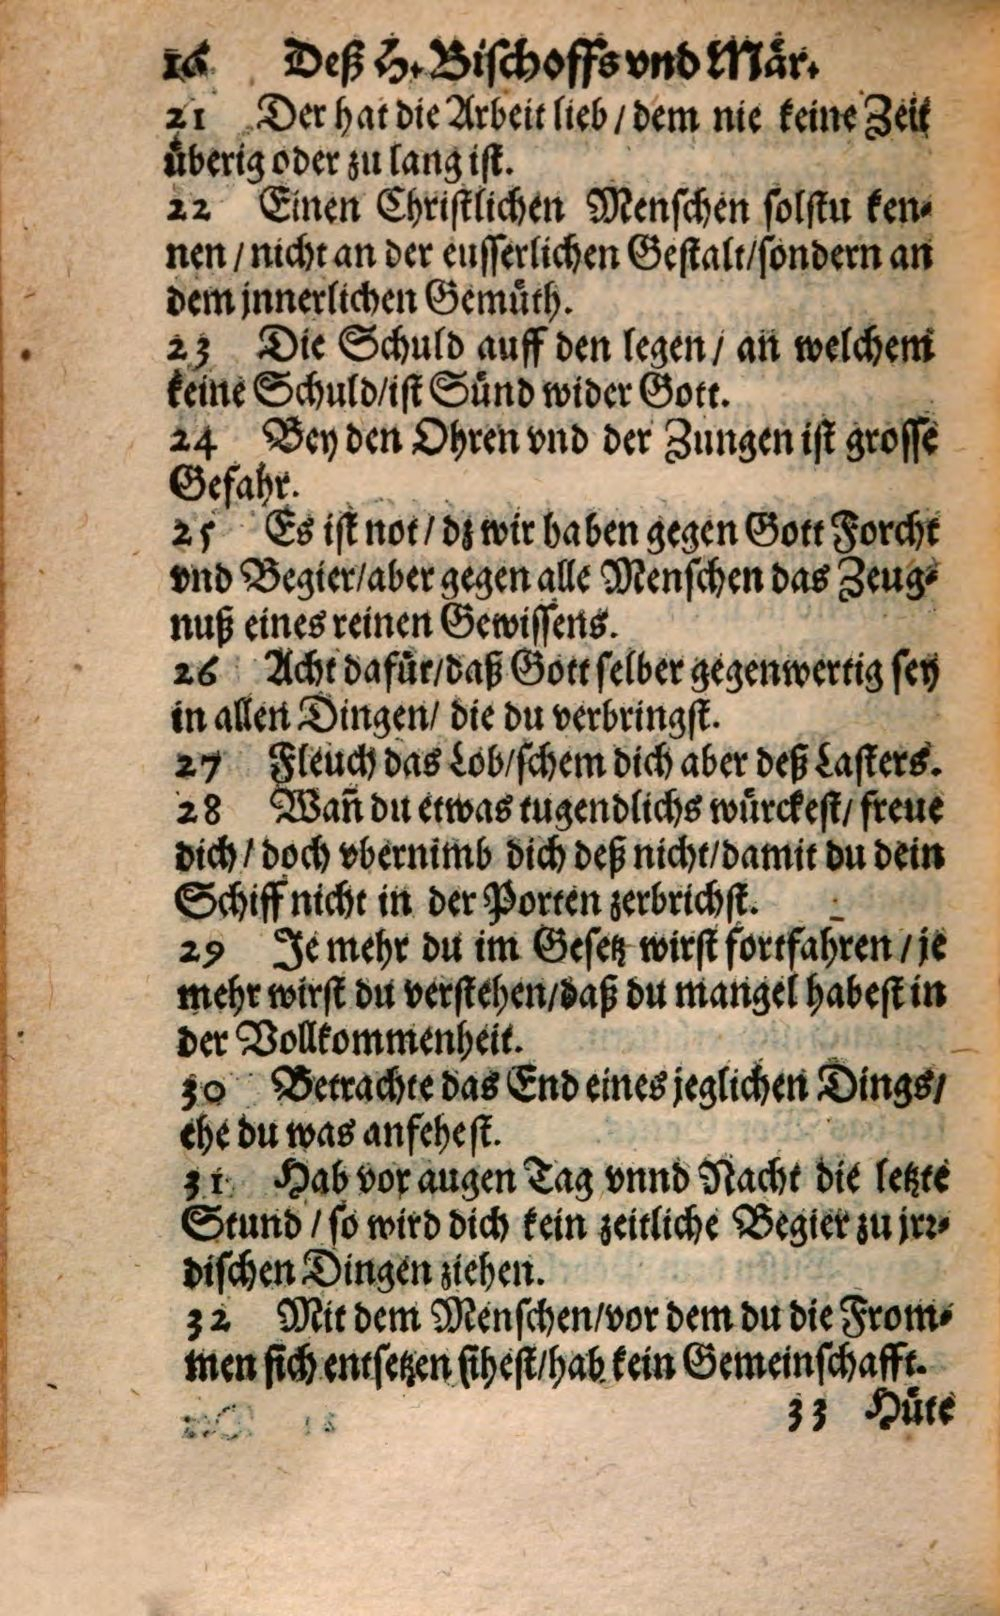 16 Deß H. Bischoffs vnd Mär.
21 Der hat die Arbeit lieb / dem nie keine Zeit
überig oder zu lang ist.
22 Einen Christlichen Menschen solstu ken-
nen / nicht an der eusserlichen Gestalt / sondern an
dem jnnerlichen Gemüth.
23 Die Schuld auff den legen / an welchem
keine Schuld / ist Sünd wider Gott.
24 Bey den Ohren vnd der Zungen ist grosse
Gefahr.
25 Es ist not / dz wir haben gegen Gott Forcht
vnd Begier / aber gegen alle Menschen das Zeug-
nuß eines reinen Gewissens.
26 Acht dafür / daß Gott selber gegenwertig sey
in allen Dingen / die du verbringst.
27 Fleuch das Lob / schem dich aber deß Lasters.
28 Wañ du etwas tugendlichs würckest / freue
dich / doch vbernimb dich deß nicht / damit du dein
Schiff nicht in der Porten zerbrichst.
29 Je mehr du im Gesetz wirst fortfahren / je
mehr wirst du verstehen / daß du mangel habest in
der Vollkommenheit.
30 Betrachte das End eines jeglichen Dings /
ehe du was anfehest.
31 Hab vor augen Tag vnnd Nacht die letzte
Stund / so wird dich kein zeitliche Begier zu jrr-
dischen Dingen ziehen.
32 Mit dem Menschen / vor dem du die From-
men sich entsetzen sihest / hab kein Gemeinschafft.
33 Hüte